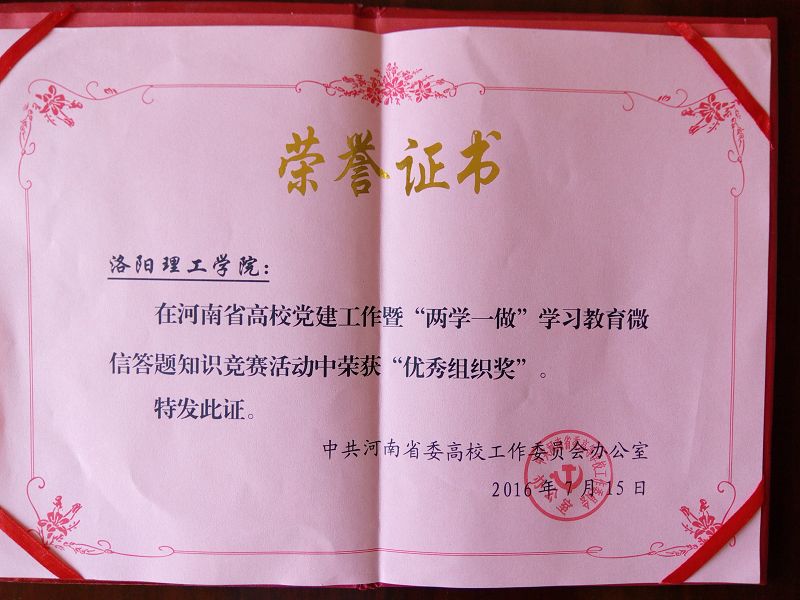 荣誉证书
洛阳理工学院：
在河南省高校党建工作暨“两学一做”学习教育微
信答题知识竞赛活动中荣获“优秀组织奖”。
特发此证。
中共河南省委高校工作委员会办公室
2016年7月15日
办公室